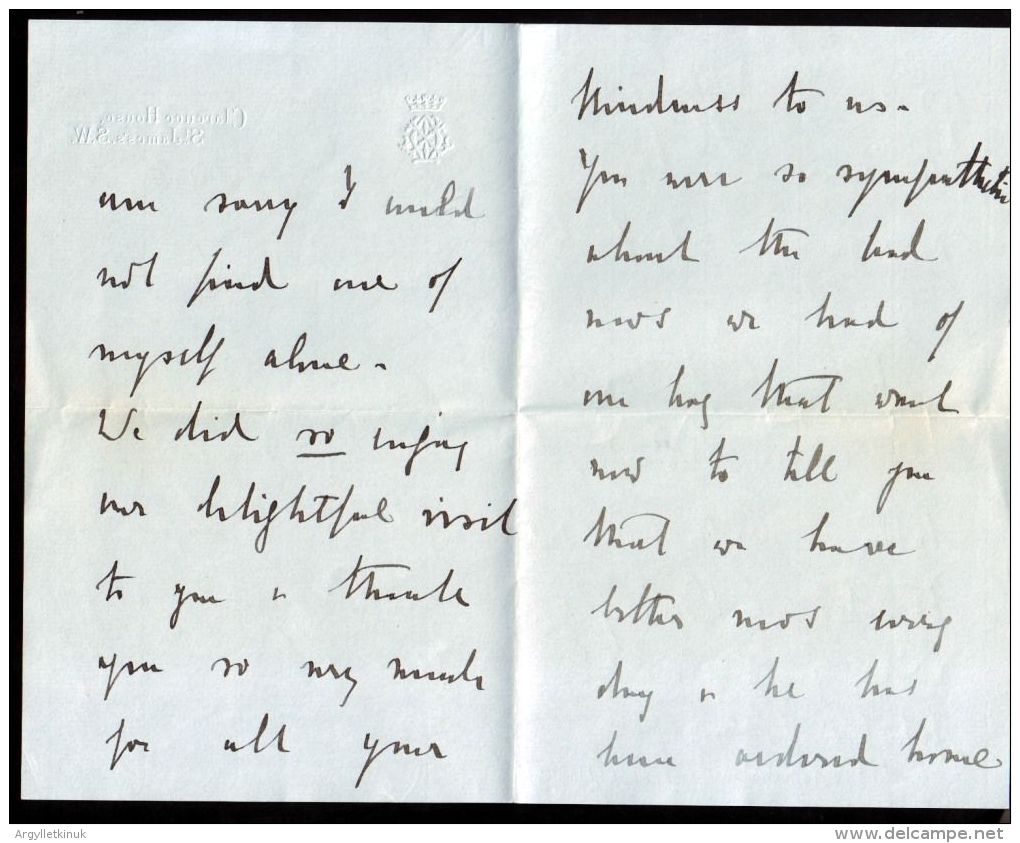 Clarence House,
St. James's. S.W.
am sorry I could
not find one of
myself alone -
We did so enjoy
our delightful visit
to you & thank
you so very much
for all your
kindness to us -
You were so sympathetic
about the bad
news we had of
our boy that I must
now to tell you
that we have
better news every
day & he has
been ordered home
Argylletkinuk
www.delcampe.net